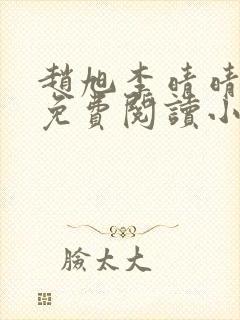 趙旭李晴晴
免費閱讀小
臉太大